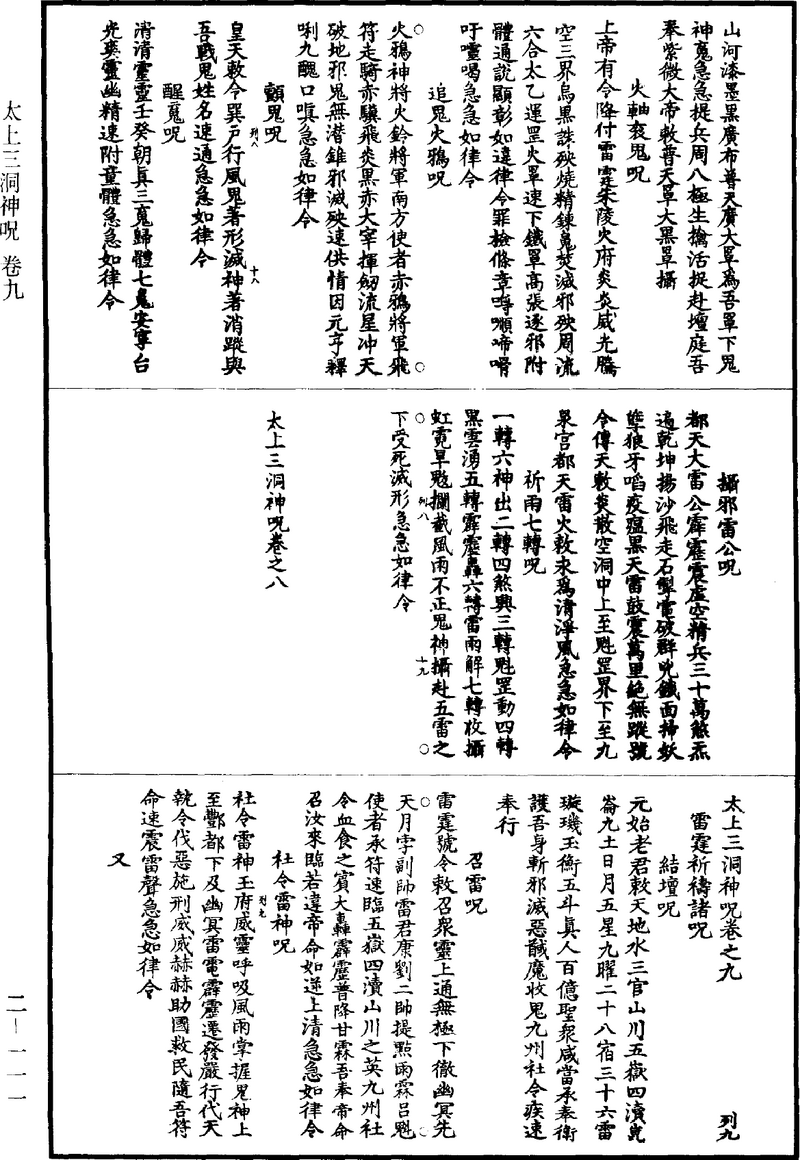 太上三洞神呪 卷九
二—一一一
山河漆墨黑廣布普天廣大罩為吾罩下鬼
神寃急急提兵周八極生擒活捉赴壇庭吾
奉紫微大帝敕普天罩大黑罩攝
火軸袞鬼呪
上帝有令降付雷霆朱陵火府炎炎威光騰
空三界烏黑誅殃燒精鍊鬼焚滅邪殃周流
六合太乙運罡火罩速下鐵罩高張逐邪附
體通說顯彰如違律令罪檢條章嘚㘈啼㗩
吁㘋喝急急如律令
追鬼火鴉呪
火鴉神將火鈴將軍南方使者赤鴉將軍飛
符走騎赤驥飛炎黑赤大宰揮劒流星冲天
破地邪鬼無潛錐邪滅殃速供情因元亨釋
唎九醜口嗔急急如律令
顫鬼呪
皇天敕令巽戶行風鬼著形滅神著消蹤與
列八
十八
吾戰鬼姓名速通急急如律令
醒䰟呪
清清靈靈壬癸朝真三䰟歸體七魄安寧台
光爽靈幽精速附童體急急如律令
攝邪雷公呪
都天大雷公霹靂震虛空精兵三十萬煞炁
遍乾坤揚沙飛走石掣電破群兇鐵面掃妖
孽狼牙啗疫瘟黑天雷鼓震萬里絕無蹤號
令傳天敕炎散空洞中上至魁罡界下至九
泉宮都天雷火敕永為清淨風急急如律令
祈雨七轉呪
一轉六神出二轉四煞興三轉魁罡動四轉
黑雲湧五轉霹靂轟六轉雷雨解七轉收攝
虹霓旱魃攔截風雨不正鬼神攝赴五雷之
列八
十九
下受死滅形急急如律令
太上三洞神呪卷之八
太上三洞神呪卷之九
列九
雷霆祈禱諸呪
結壇呪
元始老君敕天地水三官山川五嶽四瀆崑
崙九土日月五星九曜二十八宿三十六雷
璇璣玉衡五斗真人百億聖衆咸當承奉衛
護吾身斬邪滅惡馘魔收鬼九州社令疾速
奉行
召雷呪
雷霆號令敕召衆靈上通無極下徹幽冥先
天月孛副帥雷君康劉二帥提點雨霖呂魁
使者承符速臨五嶽四瀆山川之英九州社
令血食之賓大轟霹靂普降甘霖吾奉帝命
召汝來臨若違帝命如逆上清急急如律令
社令雷神呪
列九
社令雷神玉府威靈呼吸風雨掌握鬼神上
至酆都下及幽冥雷電霹靂遷發嚴行代天
執令伐惡施刑威威赫赫助國救民隨吾符
命速震雷聲急急如律令
又